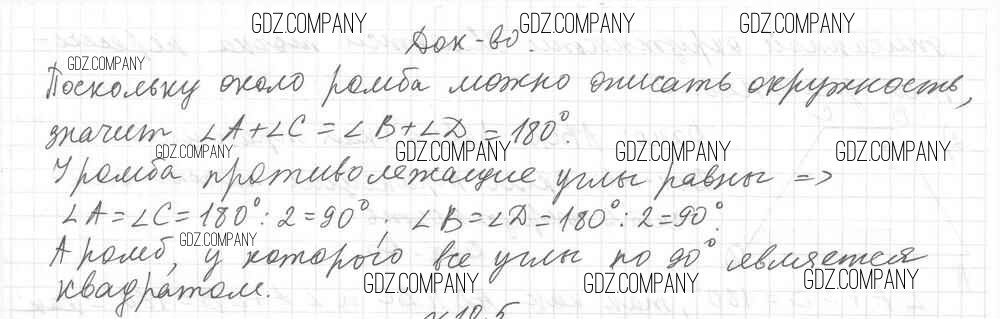 GDZ.COMPANY GDZ.COMPANY GDZ.COMPANY
Док-во.
GDZ.COMPANY
Поскольку около ромба можно описать окружность,
значит ∠A+∠C = ∠B+∠D = 180°.
GDZ.COMPANY GDZ.COMPANY GDZ.COMPANY GDZ.COMPANY
У ромба противолежащие углы равны =>
∠A = ∠C = 180° : 2 = 90°; ∠B = ∠D = 180° : 2 = 90°.
GDZ.COMPANY
А ромб, у которого все углы по 90° является
квадратом.
GDZ.COMPANY GDZ.COMPANY GDZ.COMPANY